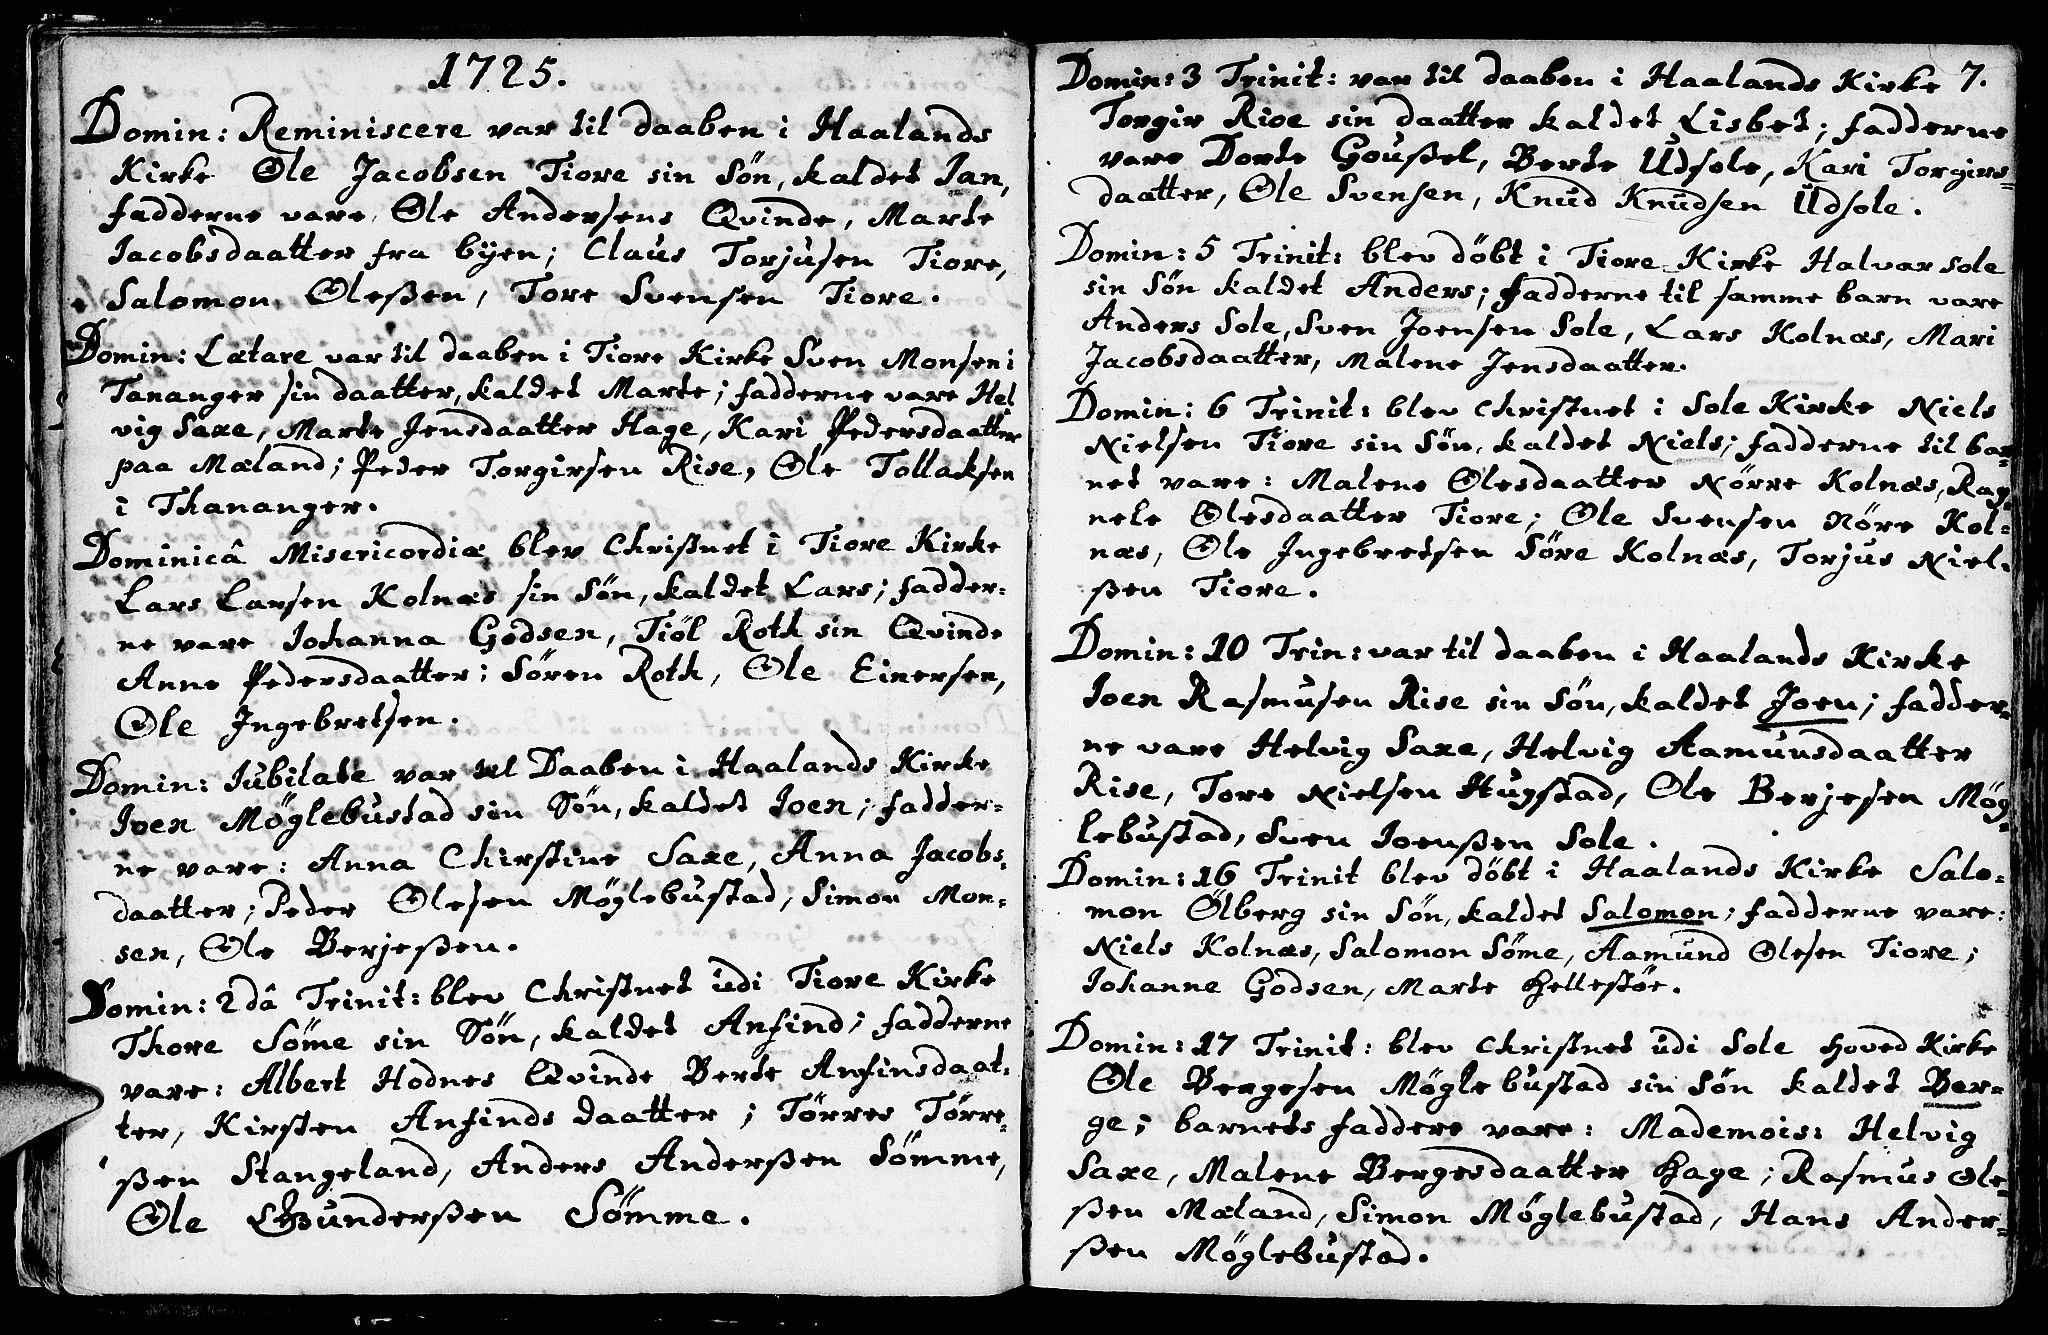 1725.
Domin: Reminiscere var til daaben i Haalands
Kirke Ole Jacobsen Tiore sin Sön, kaldet Ian,
fadderne vare, Ole Andersens Qvinde, Marte
Iacobsdaatter fra bÿen; Claus Torjusen Tiore,
Salomon Oleßen, Tore Svensen Tiore.
Domin: Lætare var til daaben i Tiore Kirke Sven Monsen i
Tananger sin daatter, kaldet Marte; fadderne vare Hel
vig Saxe, Marte Jensdaatter Hage, Kari Pedersdaatter
paa Mæland; Peder Torgirsen Rise, Ole Tollaksen
i Thananger.
Dominicâ Misericordiæ blev Christnet i Tiore Kirke
Lars Larsen Kolnæs sin Sön, kaldet Lars; fadder-
ne vare Iohanna Godsen, Tiöl Roth sin Qvinde
Anne Pedersdaatter; Sören Roth, Ole Einersen,
Ole Ingebretsen.
Domin: Iubilate var til Daaben i Haalands Kirke
Joen Möglebustad sin Sön, kaldet Ioen; fadder-
ne vare: Anna Chirstine Saxe, Anna Jacobs-
daatter; Peder Olesen Möglebustad, Simon Mon-
sen, Ole Berjeßen.
Domin: 2dâ Trinit: blev Christnet udi Tiore Kirke
Thore Söme sin Sön, kaldet Anfind; fadderne
vare: Albert Hodnes Qvinde Berte Anfinsdaat-
ter, Kirsten Anfinds daatter; Törres Törre-
ßen Stangeland, Anders Anderßen Sömme,
Ole Gunderßen Sömme.
Domin: 3 Trinit: var til daaben i Haalands Kirke 7.
Torgir Rise sin daatter kaldet Lisbet; fadderne
vare Dorte Goußel, Berte Udsole, Kari Torgirs-
daatter, Ole Svensen, Knud Knudsen Udsole.
Domin: 5 Trinit: blev döbt i Tiore Kirke Halvar Sole
sin Sön kaldet Anders; fadderne til samme barn vare
Anders Sole, Sven Joensen Sole, Lars Kolnæs, Mari
Jacobsdaatter, Malene Jensdaatter.
Domin: 6 Trinit: blev Christnet i Sole Kirke Niels
Nielsen Tiore sin Sön, kaldet Niels; fadderne til bar-
net vare: Malene Olesdaatter Nörre Kolnæs, Rag
nele Olesdaatter Tiore; Ole Svensen Nöre Kol-
næs, Ole Ingebretsen Söre Kolnæs, Torjus Niel-
ßen Tiore.
Domin: 10 Trin: var til daaben i Haalands Kirke
Ioen Rasmusen Rise sin Sön, kaldet Joen; fadder-
ne vare Helvig Saxe, Helvig Aamunsdaatter
Rise, Tore Nielsen Hugstad, Ole Berjesen Mög-
lebustad, Sven Ioenßen Sole.
Domin: 16 Trinit blev döbt i Haalands Kirke Salo-
mon Ölberg sin Sön, kaldet Salomon; fadderne vare:
Niels Kolnæs, Salomon Söme, Aamund Olesen Tiore;
Iohanne Godsen, Marte Hellestöe.
Domin: 17 Trinit: blev Christnet udi Sole Hoved Kirke
Ole Bergesen Mögle bustad sin Sön kaldet Ber-
ge; barnets faddere vare: Mademois: Helvig
Saxe, Malene Bergesdaatter Hage; Rasmus Ole-
ßen Mæland, Simon Möglebustad, Hans Ander-
ßen Möglebustad.